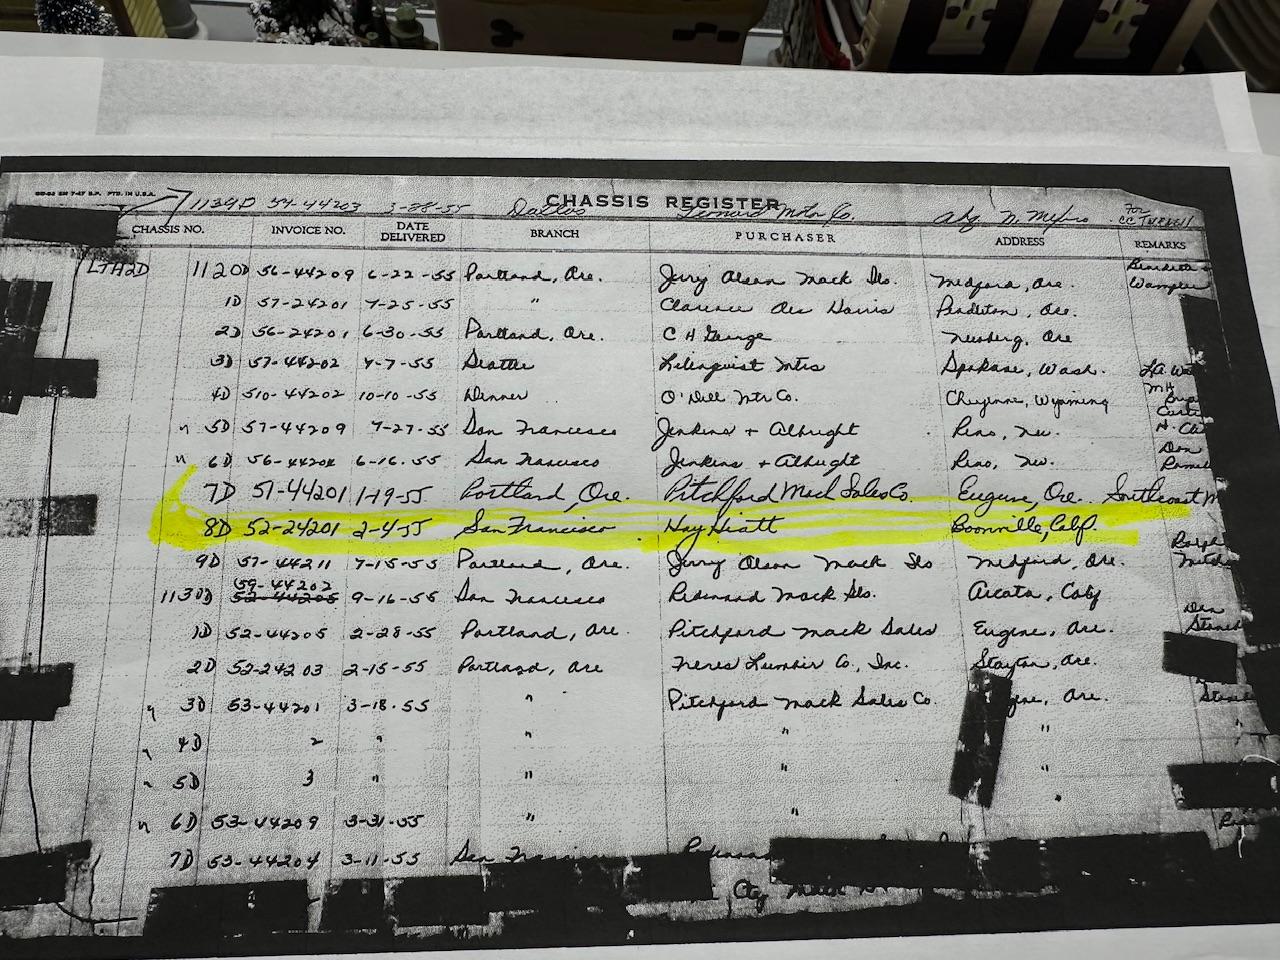 CHASSIS REGISTER
1139D 54-44203 3-28-55 Dallas Leonard Motor Co.
CHASSIS NO. INVOICE NO. DATE DELIVERED BRANCH PURCHASER ADDRESS REMARKS
LTH2D 1120D 56-44209 6-22-55 Portland, Ore. Jerry Olson Mack Sls. Medford, Ore.
1D 57-24201 7-25-55 " Clarence Harris Pendleton, Ore.
2D 56-24201 6-30-55 Portland, Ore. C H George Newberg, Ore
3D 57-44202 7-7-55 Seattle Mtrs Spokane, Wash.
4D 510-44202 10-10-55 Denver O'Dell Mtr Co. Cheyenne, Wyoming
" 5D 57-44209 7-27-55 San Francisco Jenkins + Albright Reno, Nev.
" 6D 56-44204 6-16-55 San Francisco Jenkins + Albright Reno, Nev. Don
7D 51-44201 1-19-55 Portland, Ore. Pitchford Mack Sales Co. Eugene, Ore. Southeast
8D 52-24201 2-4-55 San Francisco Hay Hiatt Boonville, Calif. Ralph
9D 57-44211 7-15-55 Portland, Ore. Jerry Olson Mack Sls Medford, Ore.
59-44202
1130D 52-44205 9-16-55 San Francisco Mack Sls. Arcata, Calif
1D 52-44205 2-28-55 Portland, Ore. Pitchford Mack Sales Eugene, Ore.
2D 52-24203 2-15-55 Portland, Ore Freres Lumber Co., Inc. Stayton, Ore.
" 3D 53-44201 3-18-55 " Pitchford Mack Sales Co. Ore.
" 4D 2 " " " "
" 5D 3 " " " "
" 6D 53-44209 3-31-55 " "
7D 53-44204 3-11-55 San